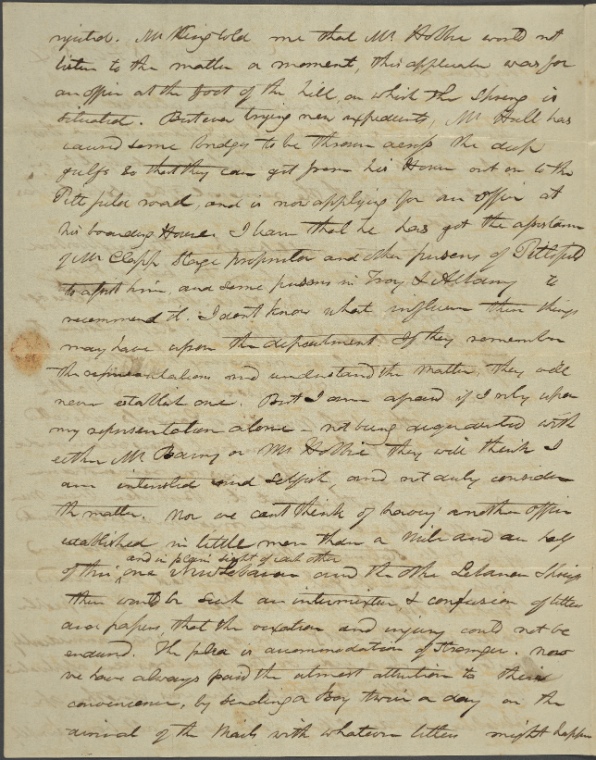 rejected. Mr King told me that Mr Hobbie would not
listen to the matter a moment, this application was for
an office at the foot of the hill, on which the Spring is
situated. But ever trying new expedients, Mr Hull has
caused some bridges to be thrown across the deep
gulfs so that they can get from his House out on to the
Pittsfield road, and is now applying for an office at
his boarding House. I learn that he has got the assistance
of Mr Clapp Stage proprietor and other persons of Pittsfield
to assist him, and some persons in Troy & Albany to
recommend it. I dont know what influence these things
may have upon the department. If they remember
the representations and understand the matter, they will
never establish one. But I am afraid if I rely upon
my representation alone - not being acquainted with
either Mr Barry or Mr Hobbie they will think I
am interested and selfish, and not duly consider
the matter. Nor we cant think of having another office
established in little more than a mile and an half
and in plain sight of each other
of this, one New Lebanon and the other Lebanon Springs
there would be such an intermixture & confusion of letters
and papers, that the vexation and injury could not be
endured. The plea is accommodation of strangers. Now
we have always paid the utmost attention to their
convenience, by sending a Boy twice a day on the
arrival of the Mails with whatever letters might happen